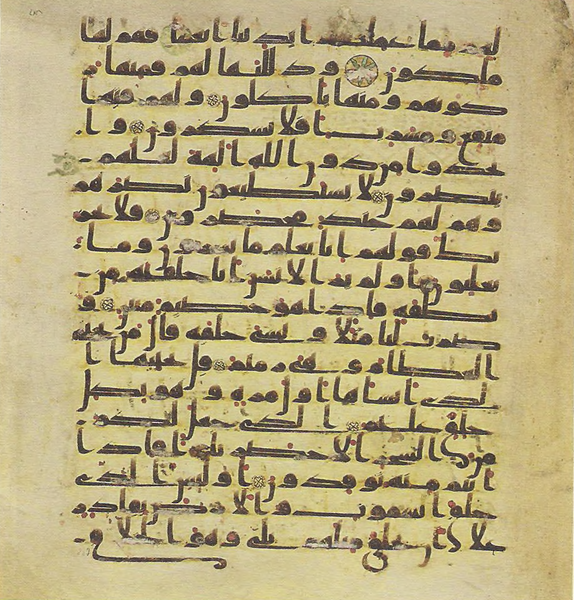 لهم مما عملت ايدينا انعما فهم لها
ملكون وذللنها لهم فمنها ر
كوبهم ومنها ياكلون ولهم فيها
منفع ومشرب افلا يشكرون وا
تخذوا من دون الله الهة لعلهم
ينصرون لا يستطيعون نصرهم
وهم لهم جند محضرون فلا يحز
نك قولهم انا نعلم ما يسرون وما
يعلنون اولم ير الانسن انا خلقنه من
نطفة فاذا هو خصيم مبين و
ضرب لنا مثلا ونسي خلقه قال من يحي
العظام وهي رميم قل يحييها ا
لذي انشاها اول مرة وهو بكل
خلق عليم الذي جعل لكم
من الشجر الاخضر نارا فاذا ا
نتم منه توقدون اوليس الذي
خلق السموت والارض بقادر
على ان يخلق مثلهم بلى وهو الخلاق